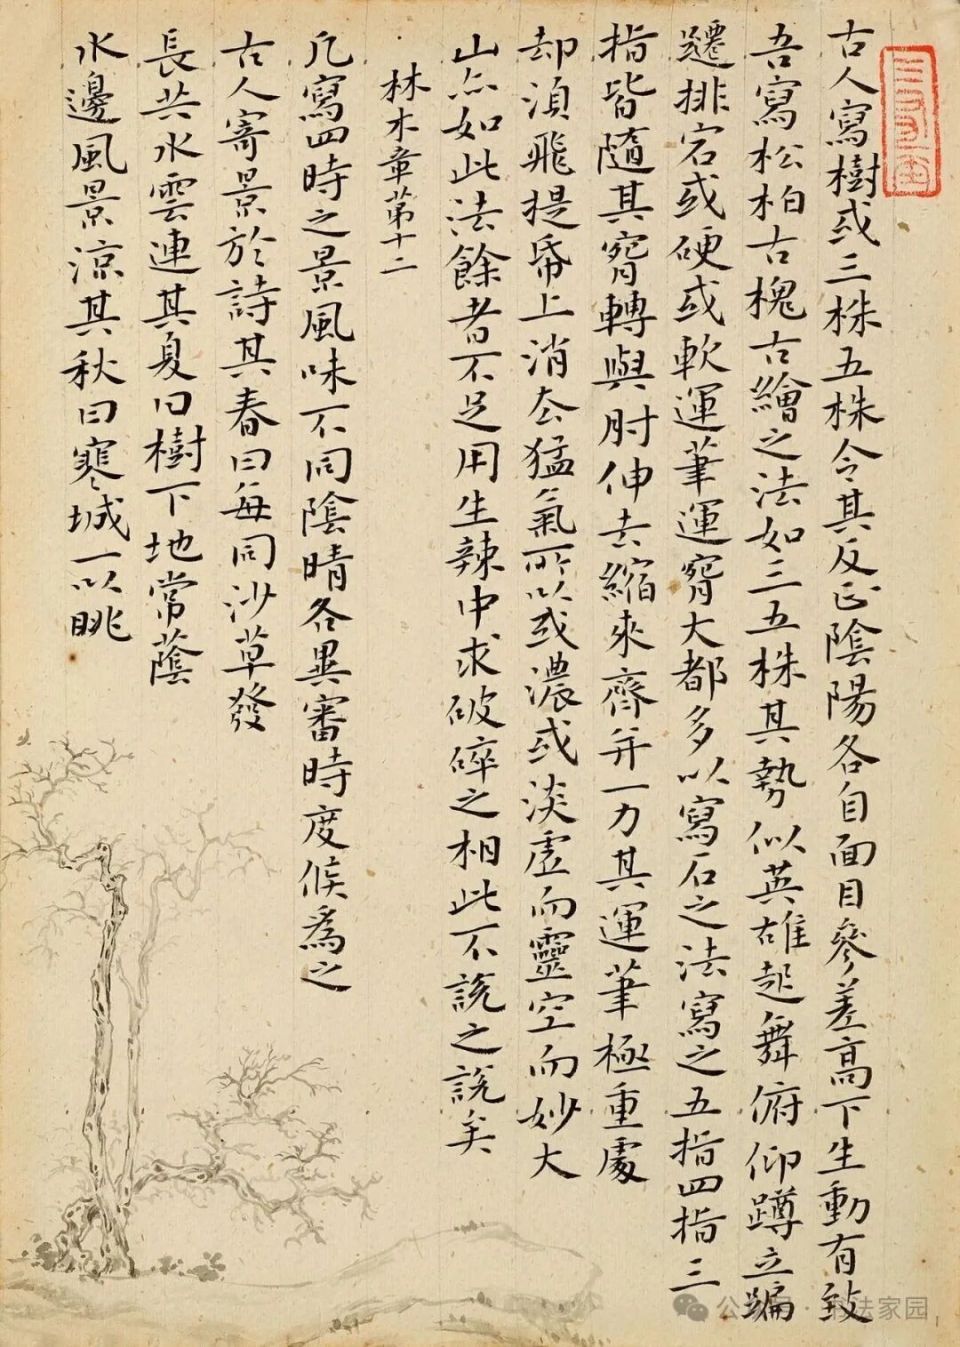 古人寫樹或三株五株令其反正陰陽各自面目參差高下生動有致
吾寫松柏古槐古繪之法如三五株其勢似英雄起舞俯仰蹲立蹁
躚排宕或硬或軟運筆運腕大都多以寫石之法寫之五指四指三
指皆隨其腕轉與肘伸去縮來齊并一力其運筆極重處
却須飛提帋上消去猛氣所以或濃或淡虛而靈空而妙大
山亦如此法餘者不足用生辣中求破碎之相此不說之說矣
林木章第十二
凡寫四時之景風味不同陰晴各異審時度候為之
古人寄景於詩其春曰每同沙草發
長共水雲連其夏曰樹下地常蔭
水邊風景涼其秋曰寒城一以眺
公众号 · 书法家园